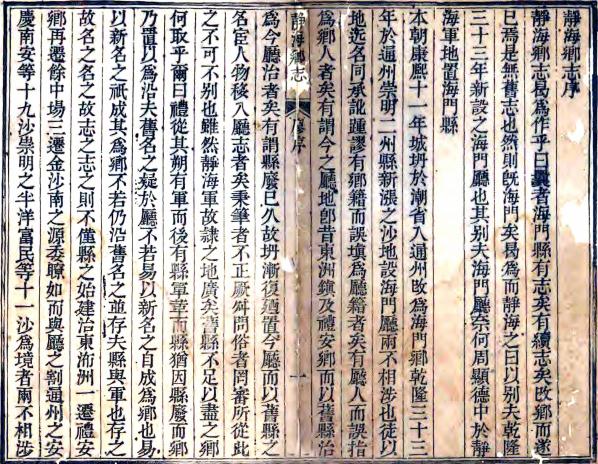 靜海鄉志序
靜海鄉志曷爲作乎曰曩者海門縣有志矣有續志矣攺鄉而遂
已焉是無舊志也然則旣海門矣曷爲而靜海之曰以别夫乾隆
三十三年新設之海門廳也其别夫海門廳奈何周顯德中於靜
海軍地置海門縣
本朝康熙十一年城坍於潮省入通州攺爲海門鄉乾隆三十三
年於通州崇明二州縣新漲之沙地設海門廳兩不相涉也徒以
地迩名同承訛踵謬有鄉籍而誤塡爲廳籍者矣有廳人而誤指
爲鄉人者矣有謂今之廳地卽昔東洲鎭及禮安鄉而以舊縣治
靜海鄉志
序
一
爲今廳治者矣有謂縣廢已久故坍漸復廼置今廳而以舊縣之
名宦人物移入廳志者矣秉筆者不正厥舛問俗者罔審所從此
之不可不别也雖然靜海軍故隸之地廣矣舊縣不足以盡之鄉
何取乎爾曰禮從其朔有軍而後有縣軍章而縣猶因縣廢而鄉
乃置以爲沿夫舊名之疑於廳不若易以新名之自成爲鄉也易
以新名之祇成其爲鄉不若仍沿舊名之並存夫縣與軍也存之
故名之名之故志之志之則不僅縣之始建治東洲一遷禮安
鄉再遷餘中場三遷金沙南之源委瞭如而與廳之割通州之安
慶南安等十九沙崇明之半洋富民等十一沙爲境者兩不相涉